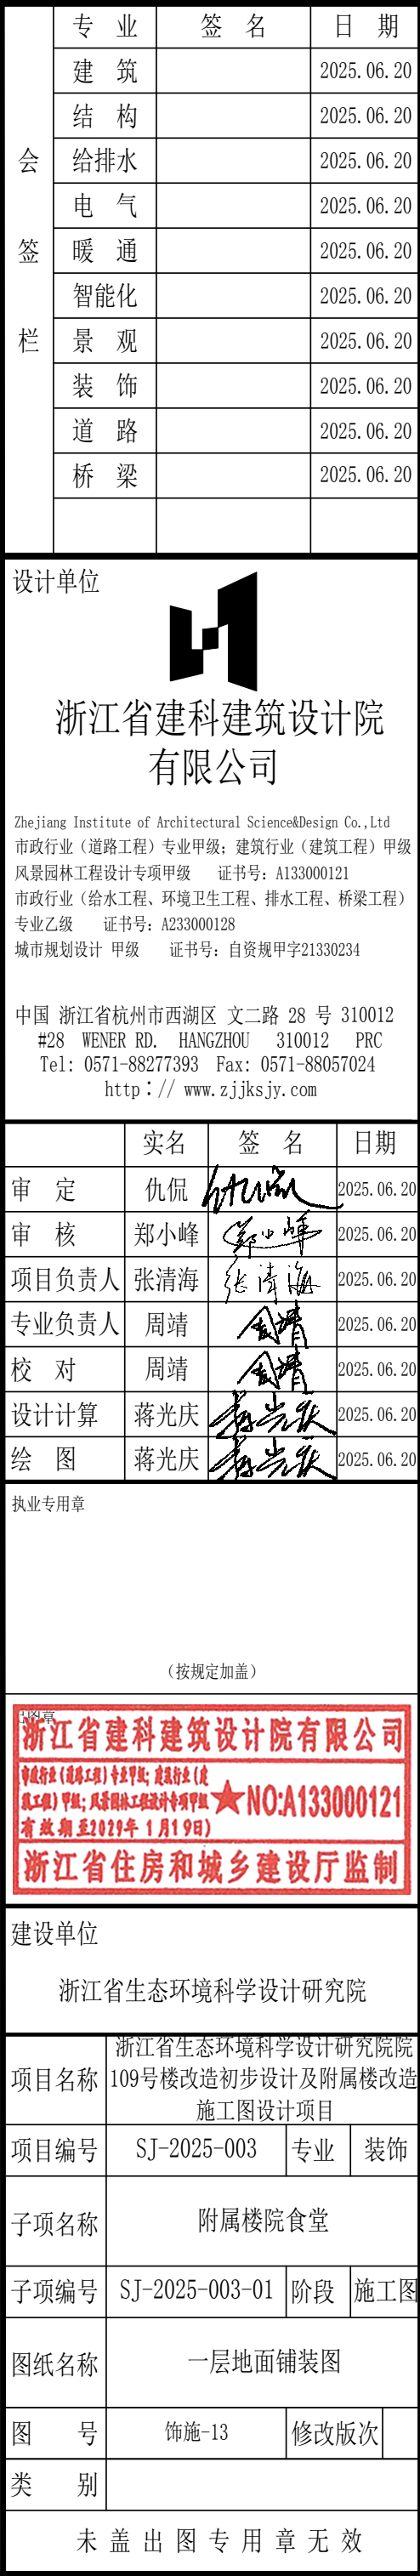 专 业 签 名 日 期
建 筑 2025.06.20
结 构 2025.06.20
给排水 2025.06.20
电 气 2025.06.20
暖 通 2025.06.20
智能化 2025.06.20
景 观 2025.06.20
装 饰 2025.06.20
道 路 2025.06.20
桥 梁 2025.06.20
会
签
栏
设计单位
浙江省建科建筑设计院
有限公司
Zhejiang Institute of Architectural Science&Design Co.,Ltd
市政行业（道路工程）专业甲级；建筑行业（建筑工程）甲级
风景园林工程设计专项甲级 证书号：A133000121
市政行业（给水工程、环境卫生工程、排水工程、桥梁工程）
专业乙级 证书号：A233000128
城市规划设计 甲级 证书号：自资规甲字21330234
中国 浙江省杭州市西湖区 文二路 28 号 310012
#28 WENER RD. HANGZHOU 310012 PRC
Tel: 0571-88277393 Fax: 0571-88057024
http：// www.zjjksjy.com
实名 签 名 日期
审 定 仇侃 仇侃 2025.06.20
审 核 郑小峰 郑小峰 2025.06.20
项目负责人 张清海 张清海 2025.06.20
专业负责人 周靖 周靖 2025.06.20
校 对 周靖 周靖 2025.06.20
设计计算 蒋光庆 蒋光庆 2025.06.20
绘 图 蒋光庆 蒋光庆 2025.06.20
执业专用章
（按规定加盖）
浙江省建科建筑设计院有限公司
市政行业(道路工程)专业甲级；建筑行业(建
筑工程)甲级；风景园林工程设计专项甲级
有效期至2029年1月19日)
★NO:A133000121
浙江省住房和城乡建设厅监制
建设单位
浙江省生态环境科学设计研究院
项目名称
浙江省生态环境科学设计研究院院
109号楼改造初步设计及附属楼改造
施工图设计项目
项目编号 SJ-2025-003 专业 装饰
子项名称 附属楼院食堂
子项编号 SJ-2025-003-01 阶段 施工图
图纸名称 一层地面铺装图
图 号 饰施-13 修改版次
类 别
未盖出图专用章无效